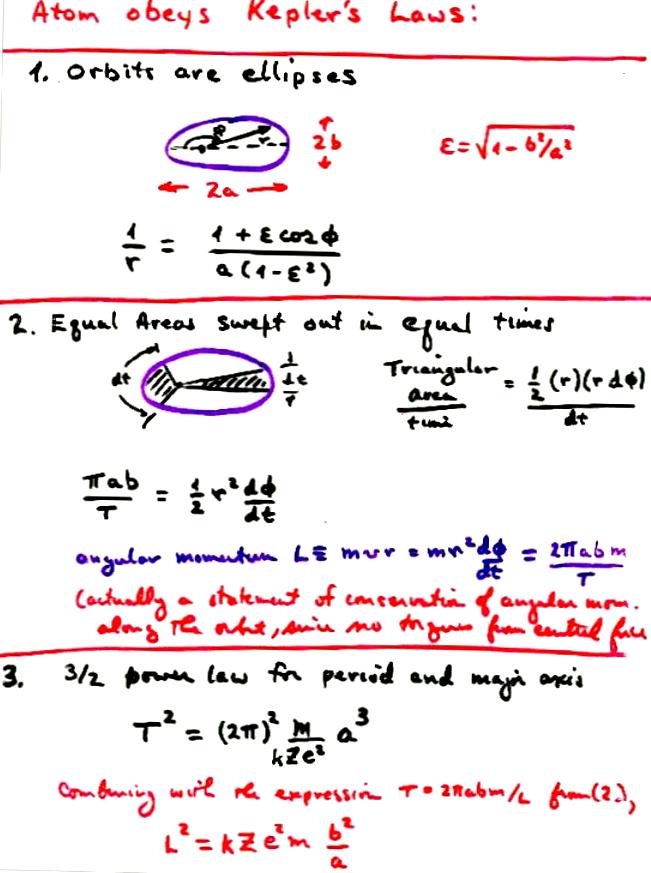 Atom obeys Kepler's Laws:
1. Orbits are ellipses
2b
ε = √1 - b²/a²
2a
1/r = 1 + ε cos φ / a(1-ε²)
2. Equal Areas swept out in equal times
dt
dt
Triangular area / time = 1/2 (r)(r dφ) / dt
πab/T = 1/2 r² dφ/dt
angular momentum L ≡ mvr = mr² dφ/dt = 2πabm/T
(actually a statement of conservation of angular mom.
along the orbit, since no torques from central force
3. 3/2 power law for period and major axis
T² = (2π)² m/kZe² a³
Combining with the expression T = 2πabm/L from (2.),
L² = kZe²m b²/a